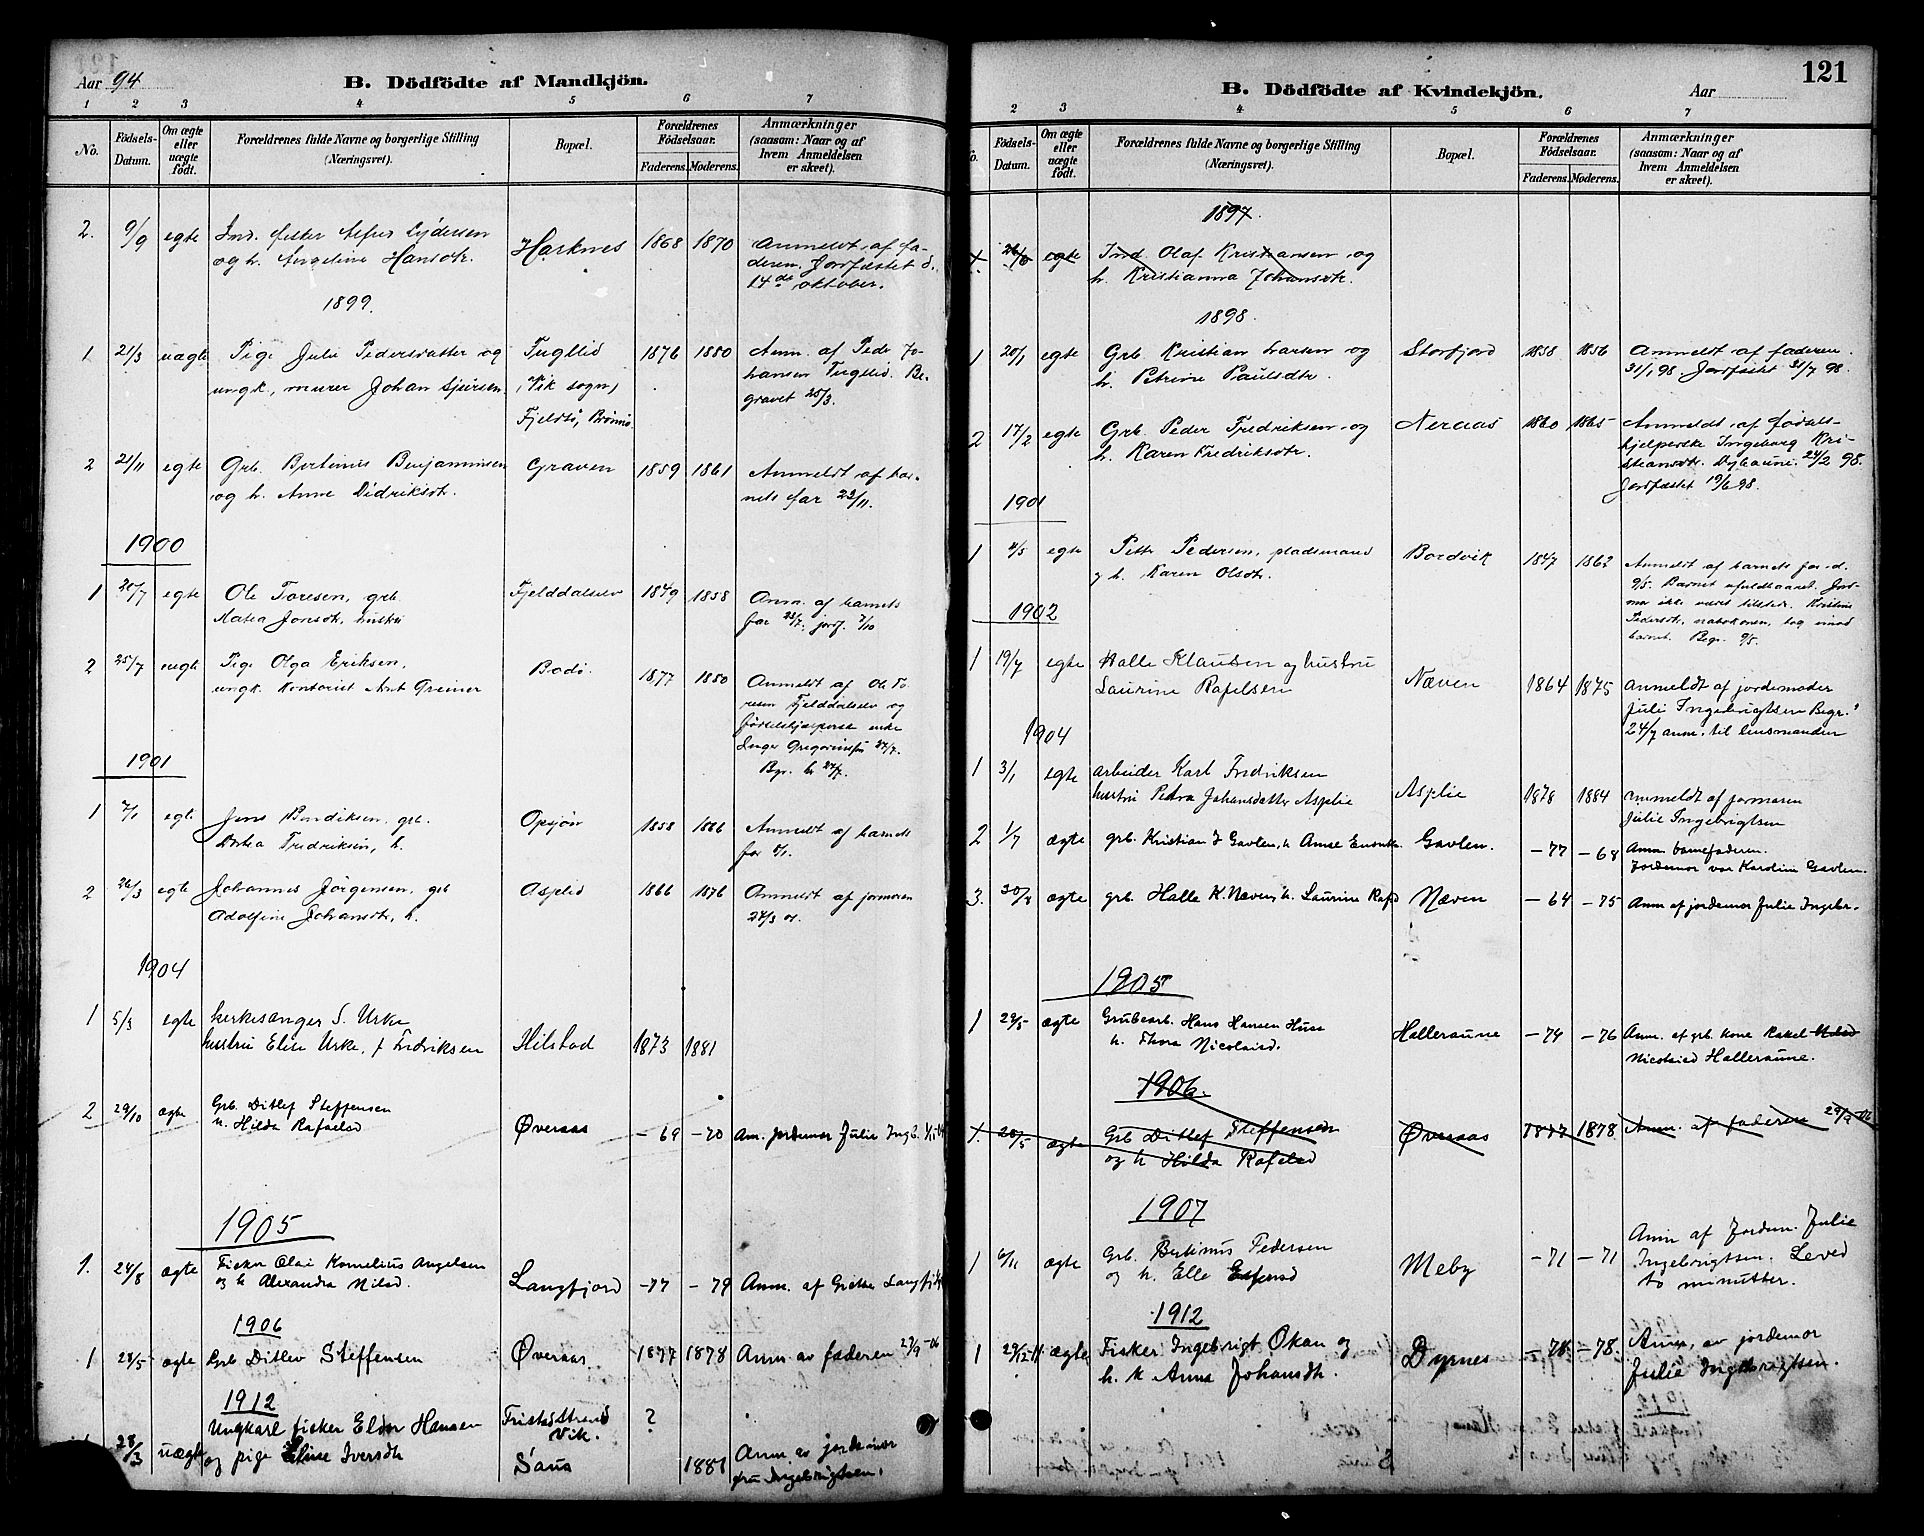 Aar 94
B. Dödfödte af Mandkjön.
1 2 3 4 5 6 7
No.
Födsels-Datum.
Om ægte eller uægte födt.
Forældrenes fulde Navne og borgerlige Stilling (Næringsvei).
Bopæl.
Forældrenes Födselsaar.
Faderens. Moderens.
Anmærkninger (saasom: Naar og af hvem Anmeldelsen er skeet).
2. 9/9 egte Ind. fisker Alfred Lydersen Harknes 1868 1870 Anmeldt af fa-
og h. Angeline Hansdtr. deren. Jordfæstet d.
14de oktober.
1899.
1 21/3 uægte Pige Julie Pedersdatter og Fugllid 1876 1880 Anm. af Peder Jo-
ungk. murer Johan Sjursen Vik sogn, hansen Fuglid. Be-
Brønnø gravet 25/3.
2 21/11 egte Grb. Bertinus Benjaminsen Graven 1859 1861 Anmeldt af bar-
og h. Anne Didriksdtr. nets far 22/11.
1900
1 20/7 egte Ole Toresen, grb. Fjelddalselv 1849 1858 Anm. af barnets
Jonsdtr. hustru far 23/7. jordf. 7/10
2 25/7 uegte Pige Olga Eriksen, Bodø. 1877 1880 Anmeldt af Ole To-
ungk. Kontorist Arnt Greiner resen Fjelddalselv og
fødselshjælperske enke
Inger
Begr. h 27/7.
1901
1 7/1 egte Jens Bendiksen, grb. Opsjøn 1858 1866 Anmeldt af barnets
Dortea Fredriksen, h. far
2 26/3 egte Johannes Jörgensen, grb Asplid 1866 1876 Anmeldt af jormoren
Adolfine Johansdtr, h. 27/3 01.
1904
1 5/3 egte kirkesanger S. Urke Hilstad 1873 1881
hustru Elise Urke, f Fredriksen
2 29/10 ægte Grb. Ditlef Steffensen Øveraas - 69 - 70 Am. jordemor Julie Ingb.
h. Hilda Rafaelsd
1905
1. 24/8 ægte Fisker Olai Kornelius Angelsen Langfjord -77 - 79 Anm. af Grethe Langfjord
og h Alexandra Nilsd.
1906
1 28/5 ægte Grb Ditlev Steffensen Øveraas 1877 1878 Anm av faderen 29/9-06
1912
28/3 uægte Ungkarl fisker Eldor Hansen Vik. ?
og pige Eline Iversdtr Saus 1881 Anm av jordemor
fru Ingebrigtsen.
121
B. Dödfödte af Kvindekjön.
Aar
2 3 4 5 6 7
No.
Födsels-Datum.
Om ægte eller uægte födt.
Forældrenes fulde Navne og borgerlige Stilling (Næringsvei).
Bopæl.
Forældrenes Födselsaar.
Faderens. Moderens.
Anmærkninger (saasom: Naar og af hvem Anmeldelsen er skeet).
1897.
egte Ind. Olaf Kristiansen og
h. Kristianna Johansdtr.
1898.
1 20/1 egte Grb. Kristian Larsen og Storfjord 1858 1856 Anmeldt af faderen
h. Petrine Paulsdtr. 31/1 98. Jordfæstet 31/7 98.
2 17/2 egte Grb. Peder Fredriksen og Neraas 1860 1865 Anmeldt af fødsels-
h. Karen Fredriksdtr. hjelperske Ingeborg Kri-
stiansdtr. 24/2 98.
Jordfæstet 19/6 98.
1901
1 4/5 egte Petter Pedersen, pladsmand Bordvik 1847 1862 Anmeldt af barnets far d.
og h. Karen Olsdtr. 9/5. Barnet Jord-
mor ikke været tilstede. Kristine
Pedersdtr, nabokonen, tog imod
barnet. Begr. 9/5.
1902
1 19/7 egte Halle Klausen og hustru Næven 1864 1875 Anmeldt af jordemoder
Laurine Rafelsen Juli Ingebrigtsen Begr.
24/7 anm. til lensmanden
1904
1 3/1 egte Arbeider Karl Fredriksen Asplie 1878 1884 Anmeldt af jormoren
hustru Petra Johansdatter Asplie Julie Ingebrigtsen
2 1/7 ægte grb. Kristian J Gavlen, h Anne Gavlen. - 77 - 68 Anm barnefaderen.
Jordemor var Karoline Gavlen.
3. ægte grb Halle K. Næven, h. Laurine Rafd Næven - 64 - 75 Anm af jordemor Julie Ingebr.
1905
1 29/5 ægte Grubearb. Hans Hansen Husa Halleraune - 74 - 76 Anm. af grb. kone Rakel
h. Thora Nicolaisd. Nicolaisd Halleraune.
1906.
1. 28/5 ægte Grb Ditlef Steffensen Øveraas 1877 1878 Anm. af faderen 29/9-06
og h Hilda Rafelsd
1907
1 6/11 ægte Grb. Bertinus Pedersen Meby - 71 - 71 Anm af Jordm. Julie
og h. Elle Esfensd Ingebrigtsen. Leved
to minutter.
1912
1 ægte Fisker Ingebrigt Okan og Dyrnes - 78 - 78. Anm. av jordemor
h. K Anna Johansdtr. Julie Ingebrigtsen.